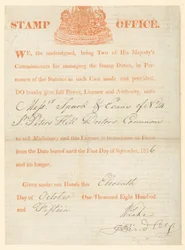 STAMP OFFICE.
WE, the undersigned, being Two of His Majesty's
Commissioners for managing the Stamp Duties, in Pur-
suance of the Statutes in such Case made and provided,
DO hereby give full Power, Licence and Authority, unto
Mess.rs & Evans of No. 4
St Peters Hill Doctors Commons
to sell Medicines, and this Licence is to continue in Force
from the Date hereof until the First Day of September 1816
and no longer.
Given under our Hands this Eleventh
Day of October One Thousand Eight Hundred
and Fifteen